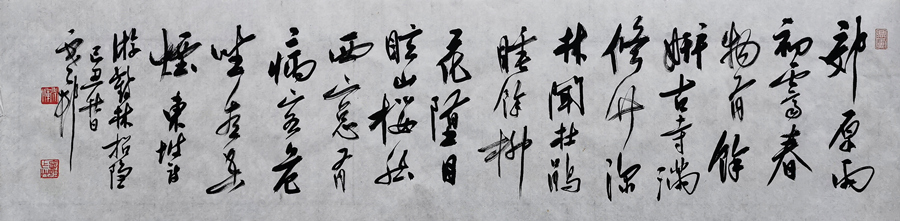 郊原雨
初霽春
物有餘
妍古寺滿
修竹深
林聞杜鵑
睡餘柳
花墮目
眩山櫻然
西窓有
病客危
坐看香
煙 東坡詩
游鶴林招隱
己丑